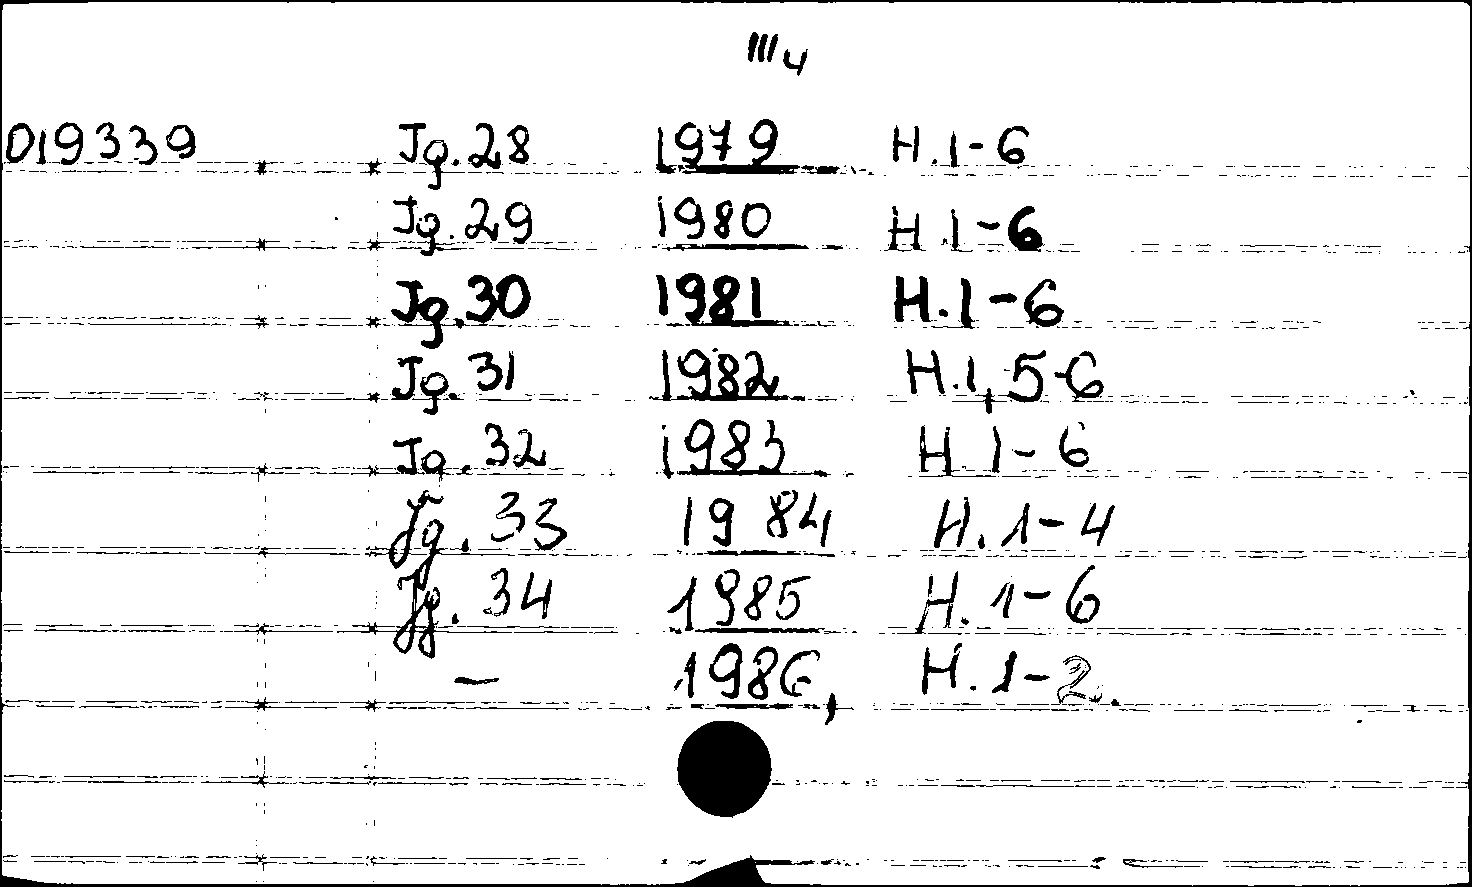 III4
D19339 Jg. 28 1979 H. 1-6
Jg. 29 1980 H 1-6
Jg. 30 1981 H. 1-6
Jg. 31 1982 H. 1, 5-6
Jg. 32 1983 H 1-6
Jg. 33 1984 H. 1-4
Jg. 34 1985 H. 1-6
- 1986, H. 1-2.